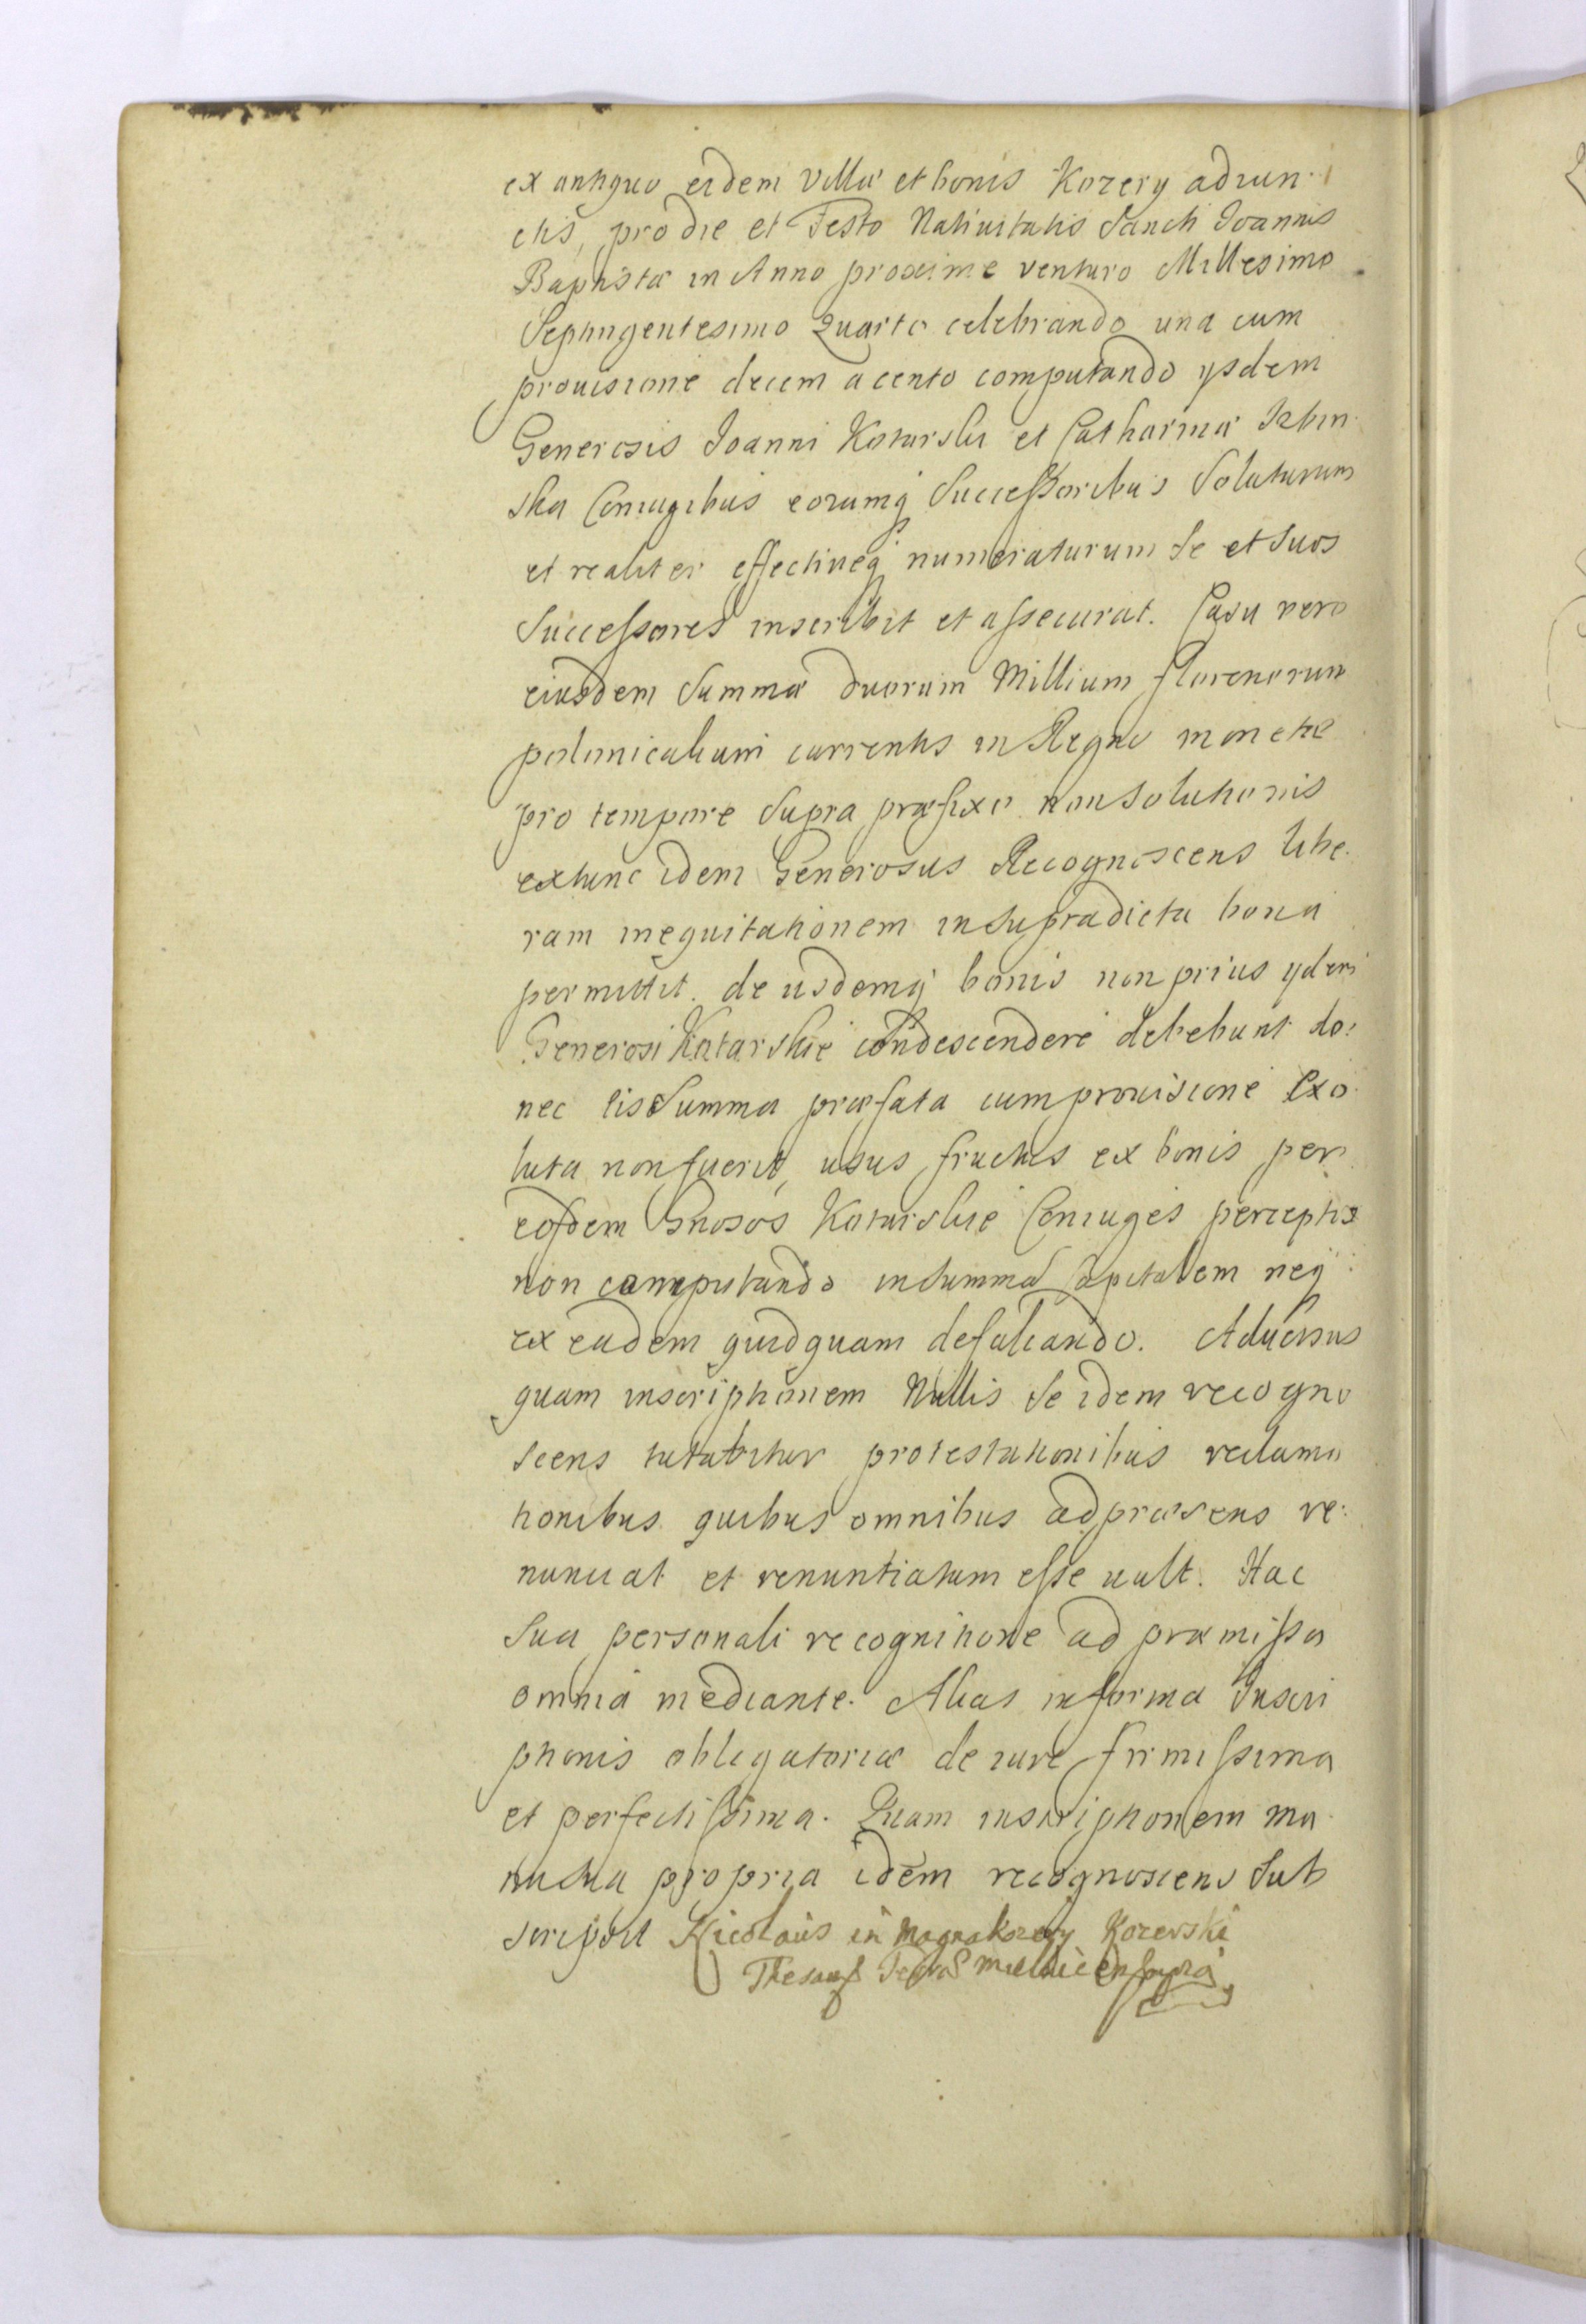 ex antiquo eidem Villæ et bonis Kozery adiun-
ctis, pro die et Festo Natiuitatis Sancti Ioannis
Baptistæ in Anno proxime venturo Millesimo
Septingentesimo Quarto celebrando una cum
prouisione decem a cento computando ysdem
Generosis Ioanni Kotarski et Catharinæ Izbin-
ska Coniugibus eorumq Successoribus Soluturum
et realiter effectiueq numeraturum Se et Suos
Successores inscribit et assecurat. Casu vero
eiusdem Summæ duorum Millium florenorum
polonicalium currentis in Regno monetæ
pro tempore Supra præfixo non Solutionis
extunc idem Generosus Recognoscens libe-
ram inequitationem in Supradicta bona
permittit. de iisdemq bonis non prius ydem
Generosi Kotarskie condescendere debebunt do-
nec eis Summa præfata cum prouisione Exo-
luta non fuerit, usus fructus ex bonis per
eosdem Gnosos Kotarskie Coniuges perceptos
non computando in Summa Capitalem neq
ex eadem quidquam defalcando. Aduersus
quam inscriptionem Nullis Se idem recogno
scens tutabitur protestationibus reclama
tionibus quibus omnibus ad præsens re-
nunciat et renuntiatum esse uult. Hac
Sua personali recognitione ad præmissa
omnia mediante. Alias in forma Inscri
ptionis obligatoriæ de iure firmissima
et perfectissima. Quam inscriptionem ma-
nu Sua propria idem recognoscens Sub
scripsit Nicolaus in Magna Kozery Kozerski
Thesaur Terræ Mielnicen